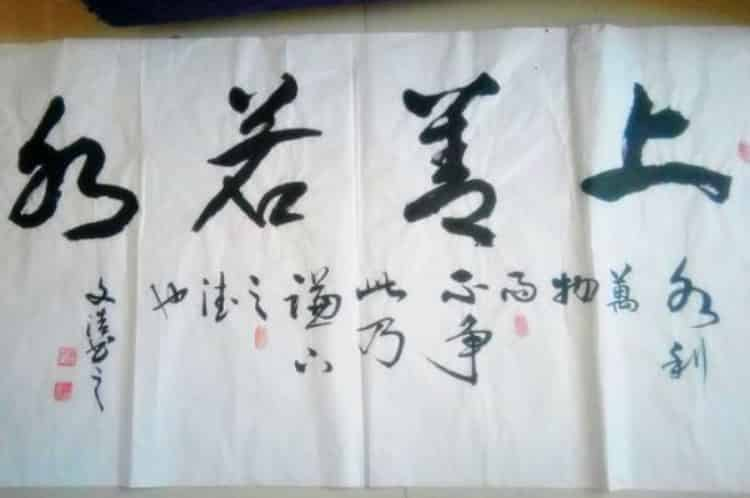 上善若水
水利
萬
物
而
不争
此乃
謙下
之
德
也
文浩书之